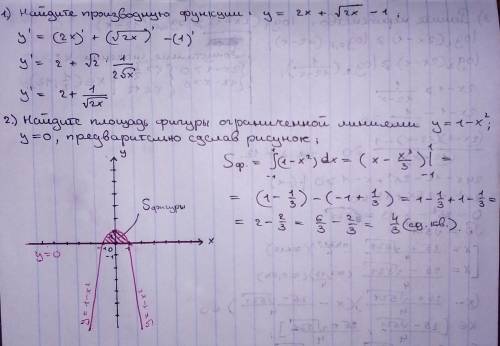 1) Найдите производную функции: y = 2x + √2x - 1;
y' = (2x)' + (√2x)' - (1)'
y' = 2 + √2 · 1/(2√x)
y' = 2 + 1/√2x
2) Найдите площадь фигуры ограниченной линиями y = 1 - x²;
y = 0, предварительно сделав рисунок;
Sф. = ∫₋₁¹ (1 - x²) dx = (x - x³/3) |₋₁¹ =
= (1 - 1/3) - (-1 + 1/3) = 1 - 1/3 + 1 - 1/3 =
= 2 - 2/3 = 6/3 - 2/3 = 4/3 (ед. кв.).
y
Sфигуры
1
-1 0 1 x
-1
y = 0
y = 1 - x²
y = 1 - x²